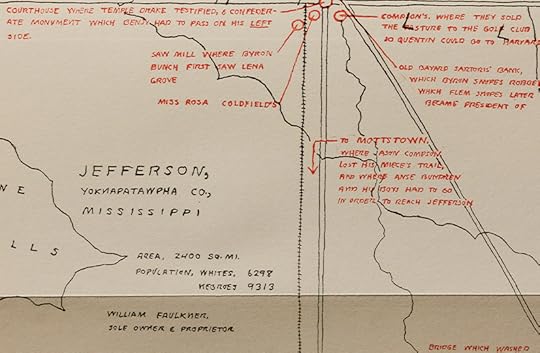 COURTHOUSE WHERE TEMPLE DRAKE TESTIFIED, & CONFEDER-
ATE MONUMENT WHICH BENJY HAD TO PASS ON HIS LEFT
SIDE.
COMPSON'S, WHERE THEY SOLD
THE PASTURE TO THE GOLF CLUB
SO QUENTIN COULD GO TO HARVARD
SAW MILL WHERE BYRON
BUNCH FIRST SAW LENA
GROVE
OLD BAYARD SARTORIS' BANK,
WHICH BYRON SNOPES ROBBED
WHICH FLEM SNOPES LATER
BECAME PRESIDENT OF
MISS ROSA COLDFIELD'S
TO MOTTSTOWN,
WHERE JASON COMPSON
LOST HIS NIECE'S TRAIL,
AND WHERE ANSE BUNDREN
AND HIS BOYS HAD TO GO
IN ORDER TO REACH JEFFERSON
JEFFERSON,
YOKNAPATAWPHA CO.,
MISSISSIPPI
N E
L L S
AREA, 2400 SQ. MI.
POPULATION, WHITES, 6298
NEGROES 9313
WILLIAM FAULKNER,
SOLE OWNER & PROPRIETOR
BRIDGE WHICH WASHED